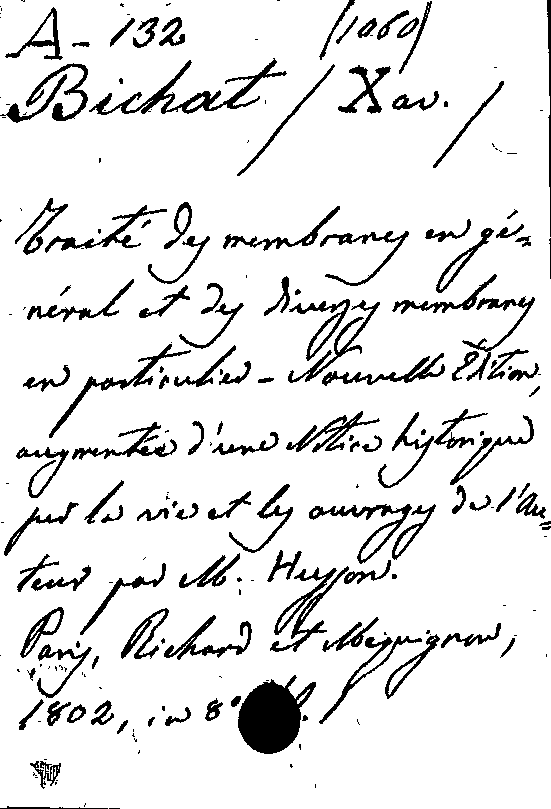 A - 132 (1060)
Bichat / Xav. /
Traité des membranes en gé=
néral et des diverses membranes
en particulier - Nouvelle Édition,
augmentée d'une Notice historique
sur la vie et les ouvrages de l'Au=
teur par M. Husson.
Paris, Richard et Mequignon,
1802, in 8°